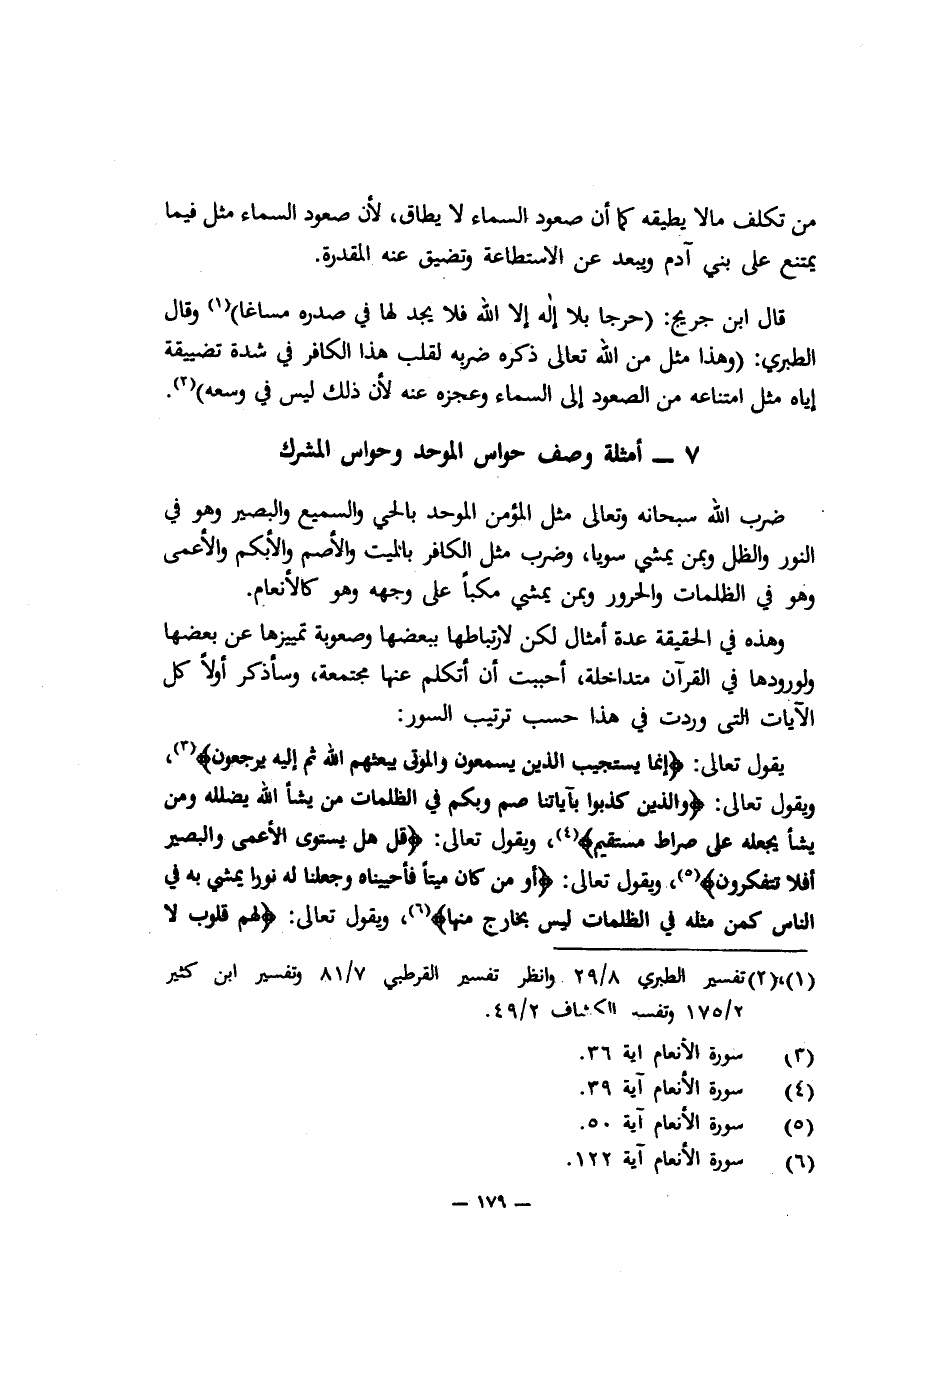 من تكلف مالا يطيقه كما أن صعود السماء لا يطاق، لأن صعود السماء مثل فيما
يمتنع على بني آدم ويبعد عن الاستطاعة وتضيق عنه المقدرة.
قال ابن جريج: (حرجا بلا إلٰه إلا الله فلا يجد لها في صدره مساغا)(١) وقال
الطبري: (وهذا مثل من الله تعالى ذكره ضربه لقلب هذا الكافر في شدة تضييقة
إياه مثل امتناعه من الصعود إلى السماء وعجزه عنه لأن ذلك ليس في وسعه)(٢).
٧ ـ أمثلة وصف حواس الموحد وحواس المشرك
ضرب الله سبحانه وتعالى مثل المؤمن الموحد بالحي والسميع والبصير وهو في
النور والظل وبمن يمشي سويا، وضرب مثل الكافر بالميت والأصم والأبكم والأعمى
وهو في الظلمات والحرور وبمن يمشي مكباً على وجهه وهو كالأنعام.
وهذه في الحقيقة عدة أمثال لكن لارتباطها ببعضها وصعوبة تمييزها عن بعضها
ولورودها في القرآن متداخلة، أحببت أن أتكلم عنها مجتمعة، وسأذكر أولاً كل
الآيات التى وردت في هذا حسب ترتيب السور:
يقول تعالى: ﴿إنما يستجيب الذين يسمعون والموتى يبعثهم الله ثم إليه يرجعون﴾(٣)،
ويقول تعالى: ﴿والذين كذبوا بآياتنا صم وبكم في الظلمات من يشأ الله يضلله ومن
يشأ يجعله على صراط مستقيم﴾(٤)، ويقول تعالى: ﴿قل هل يستوى الأعمى والبصير
أفلا تتفكرون﴾(٥)، ويقول تعالى: ﴿أو من كان ميتاً فأحييناه وجعلنا له نورا يمشي به في
الناس كمن مثله في الظلمات ليس بخارج منها﴾(٦)، ويقول تعالى: ﴿لهم قلوب لا
(١)،(٢) تفسير الطبري ٢٩/٨ وانظر تفسير القرطبي ٨١/٧ وتفسير ابن كثير
١٧٥/٢ وتفسير الكشاف ٤٩/٢.
(٣) سورة الأنعام اية ٣٦.
(٤) سورة الأنعام آية ٣٩.
(٥) سورة الأنعام آية ٥٠.
(٦) سورة الأنعام آية ١٢٢.
— ١٧٩ —